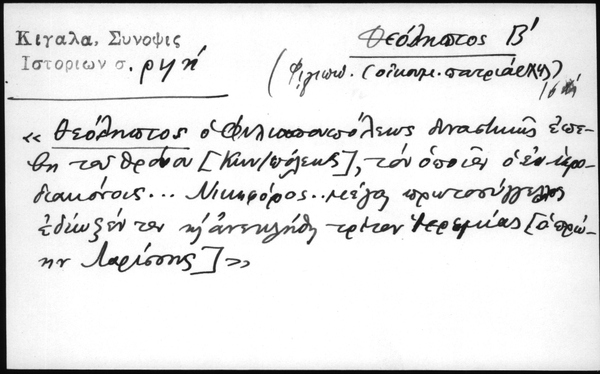 Κιγαλα, Συνοψις
Ιστοριων σ. ρμή
Θεόληπτος Β΄
(οἰκουμ. πατριάρχης)
16
« Θεόληπτος ὁ Φιλιππουπόλεως δυναστικῶς ἐπέ-
βη τοῦ θρόνου [Κων/πόλεως], τὸν ὁποῖον ὁ ἐν ἱερο-
διακόνοις... Νικηφόρος.. μέγας πρωτοσύγγελλος
ἐδίωξέν τον κ' ἀνεκλήθη τρίτον Ἱερεμίας [ὁ πρώ-
ην Λαρίσσης] »